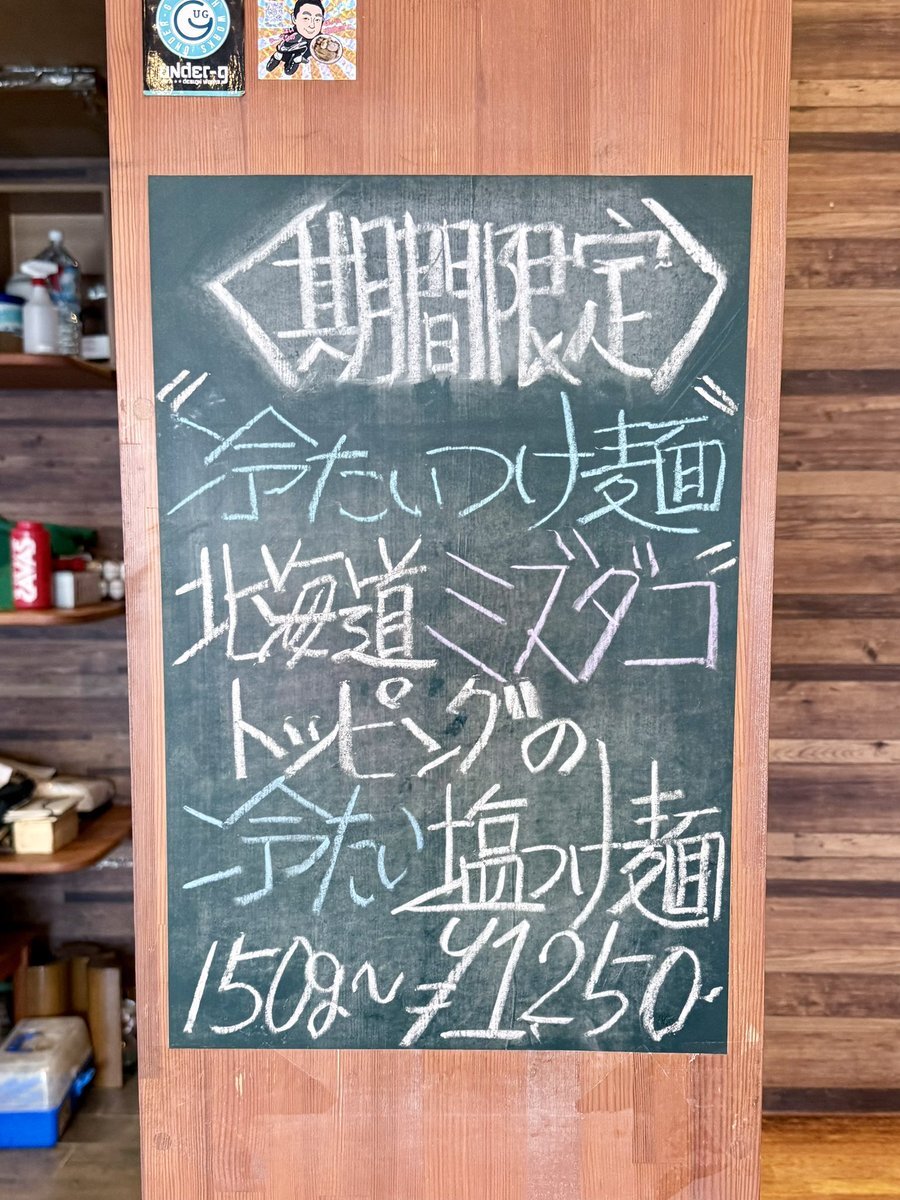 UG
under-g
DESIGN WORKS
〈期間限定〉
"冷たいつけ麺"
北海道ミズダコ"
トッピングの
冷たい塩つけ麺
150g〜¥1250-
SAVAS